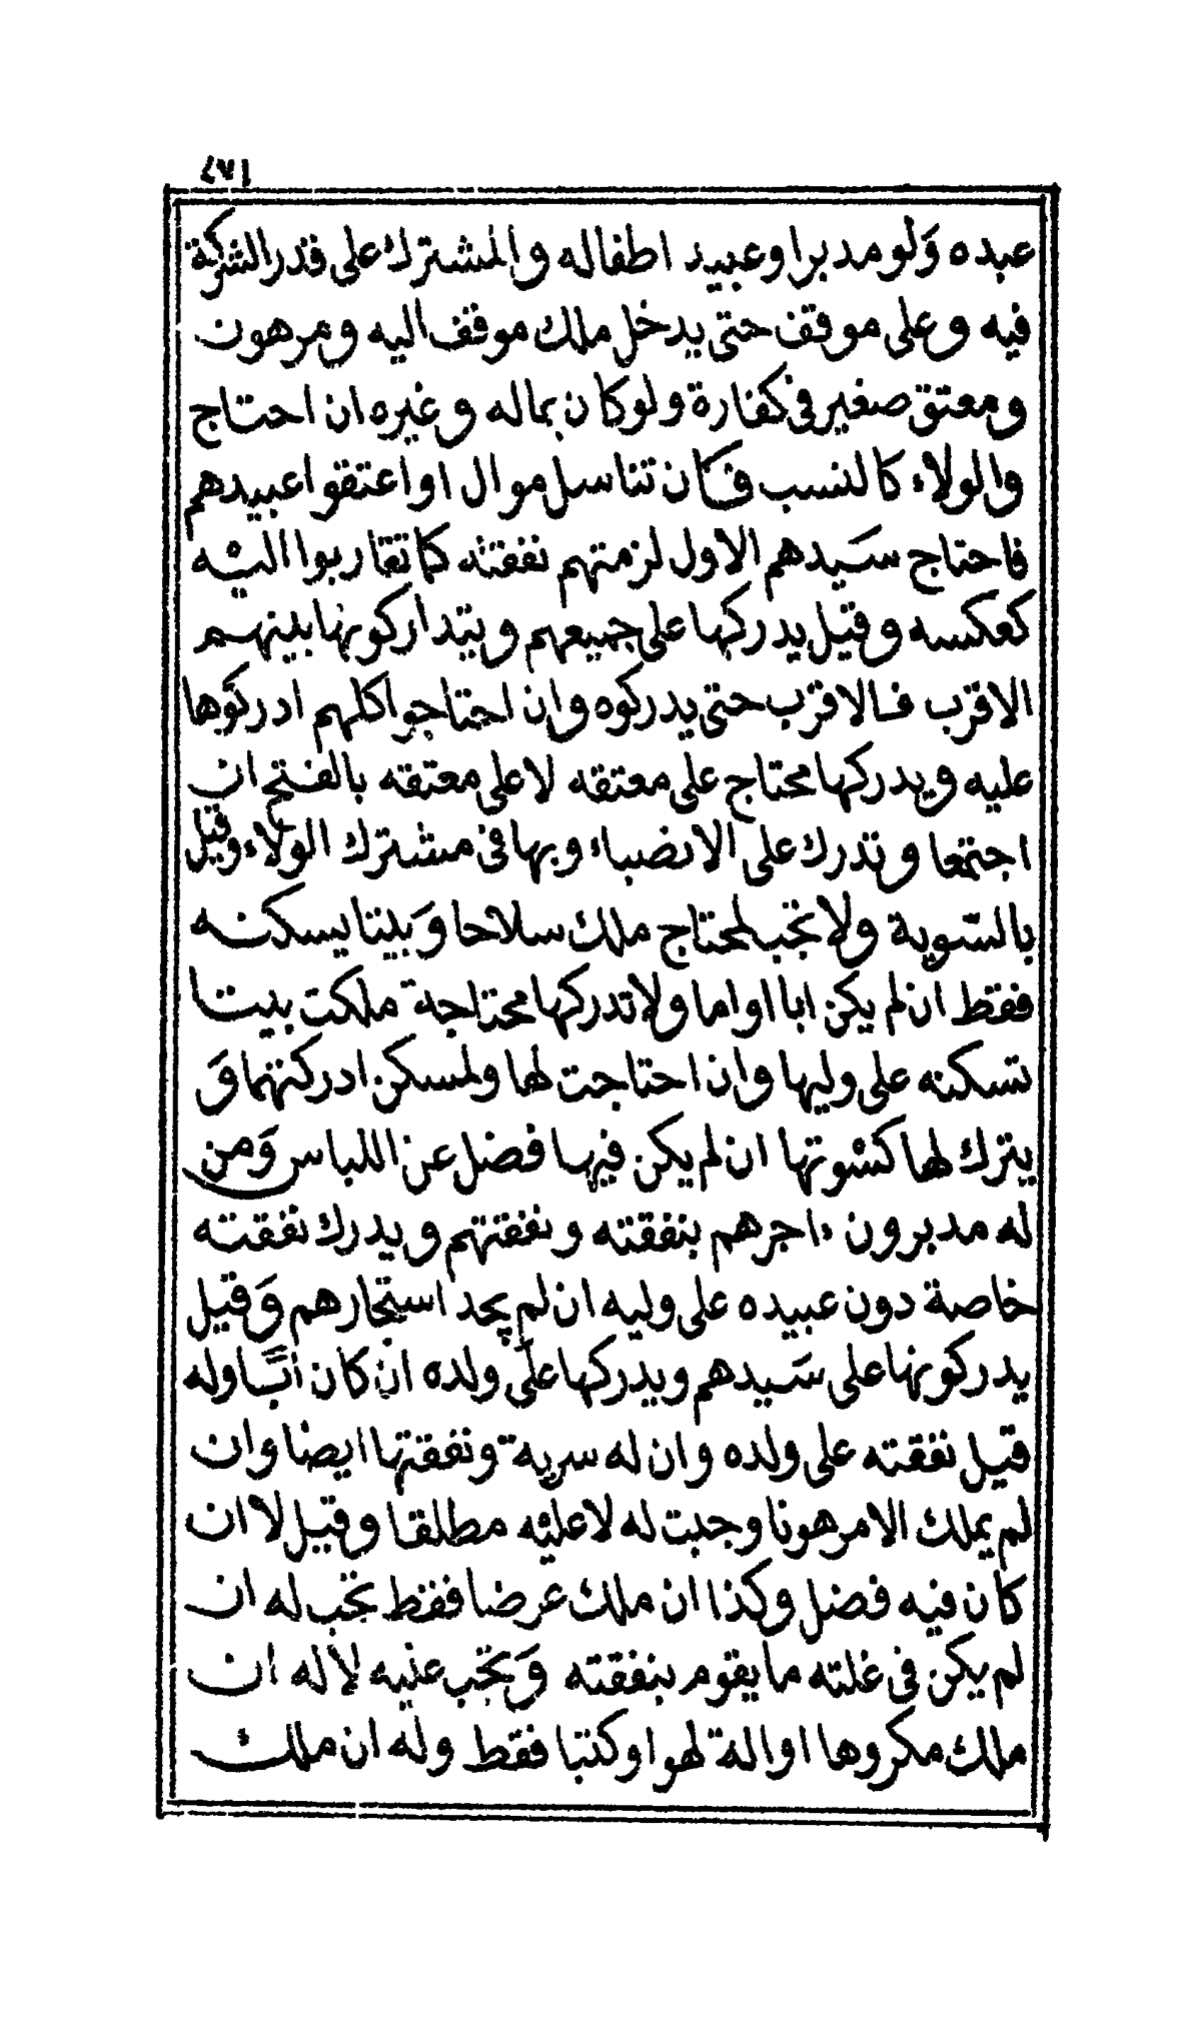 ١٨٧
عبده وَلو مدبرا وعبيد اطفاله والمشترك على قدر الشركة
فيه وعلى موقف حتى يدخل ملك موقف اليه ومرهون
ومعتق صغير في كفارة ولو كان بماله وغيره ان احتاج
والولاء كالنسب فكان تناسل موال او اعتقوا عبيدهم
فاحتاج سَيدهم الاول لزمتهم نفقته كما تقاربوا اليه
كعكسه وقيل يدركها على جميعهم ويتداركونها بينهم
الاقرب فالاقرب حتى يدركوه وان احتاجوا كلهم ادركوها
عليه ويدركها محتاج على معتقه لا على معتقه بالفتح ان
اجتمعا وتدرك على الانصباء وبها في مشترك الولاء وقيل
بالسّوية ولا تجب لمحتاج ملك سلاحا وَبيتا يسكنه
فقط ان لم يكن ابا او اما ولا تدركها محتاجة ملكت بيتا
تسكنه على وليها وان احتاجت لها ولمسكن ادركتهما وَ
يترك لها كسوتها ان لم يكن فيها فضل عن اللباس وَمن
له مدبرون ءاجرهم بنفقته ونفقتهم ويدرك نفقته
خاصة دون عبيده على وليه ان لم يجد استيجارهم وَقيل
يدركونها على سَيدهم ويدركها على ولده ان كان أبًا وله
قيل نفقته على ولده وان له سرية ونفقتها ايضا وان
لم يملك الا مرهونا وجبت له لا عليه مطلقا وقيل لا ان
كان فيه فضل وكذا ان ملك عرضا فقط تجب له ان
لم يكن في غلته ما يقوم بنفقته وَتجب عليه لا له ان
ملك مكروها او الة لهو او كتبا فقط وله ان ملك